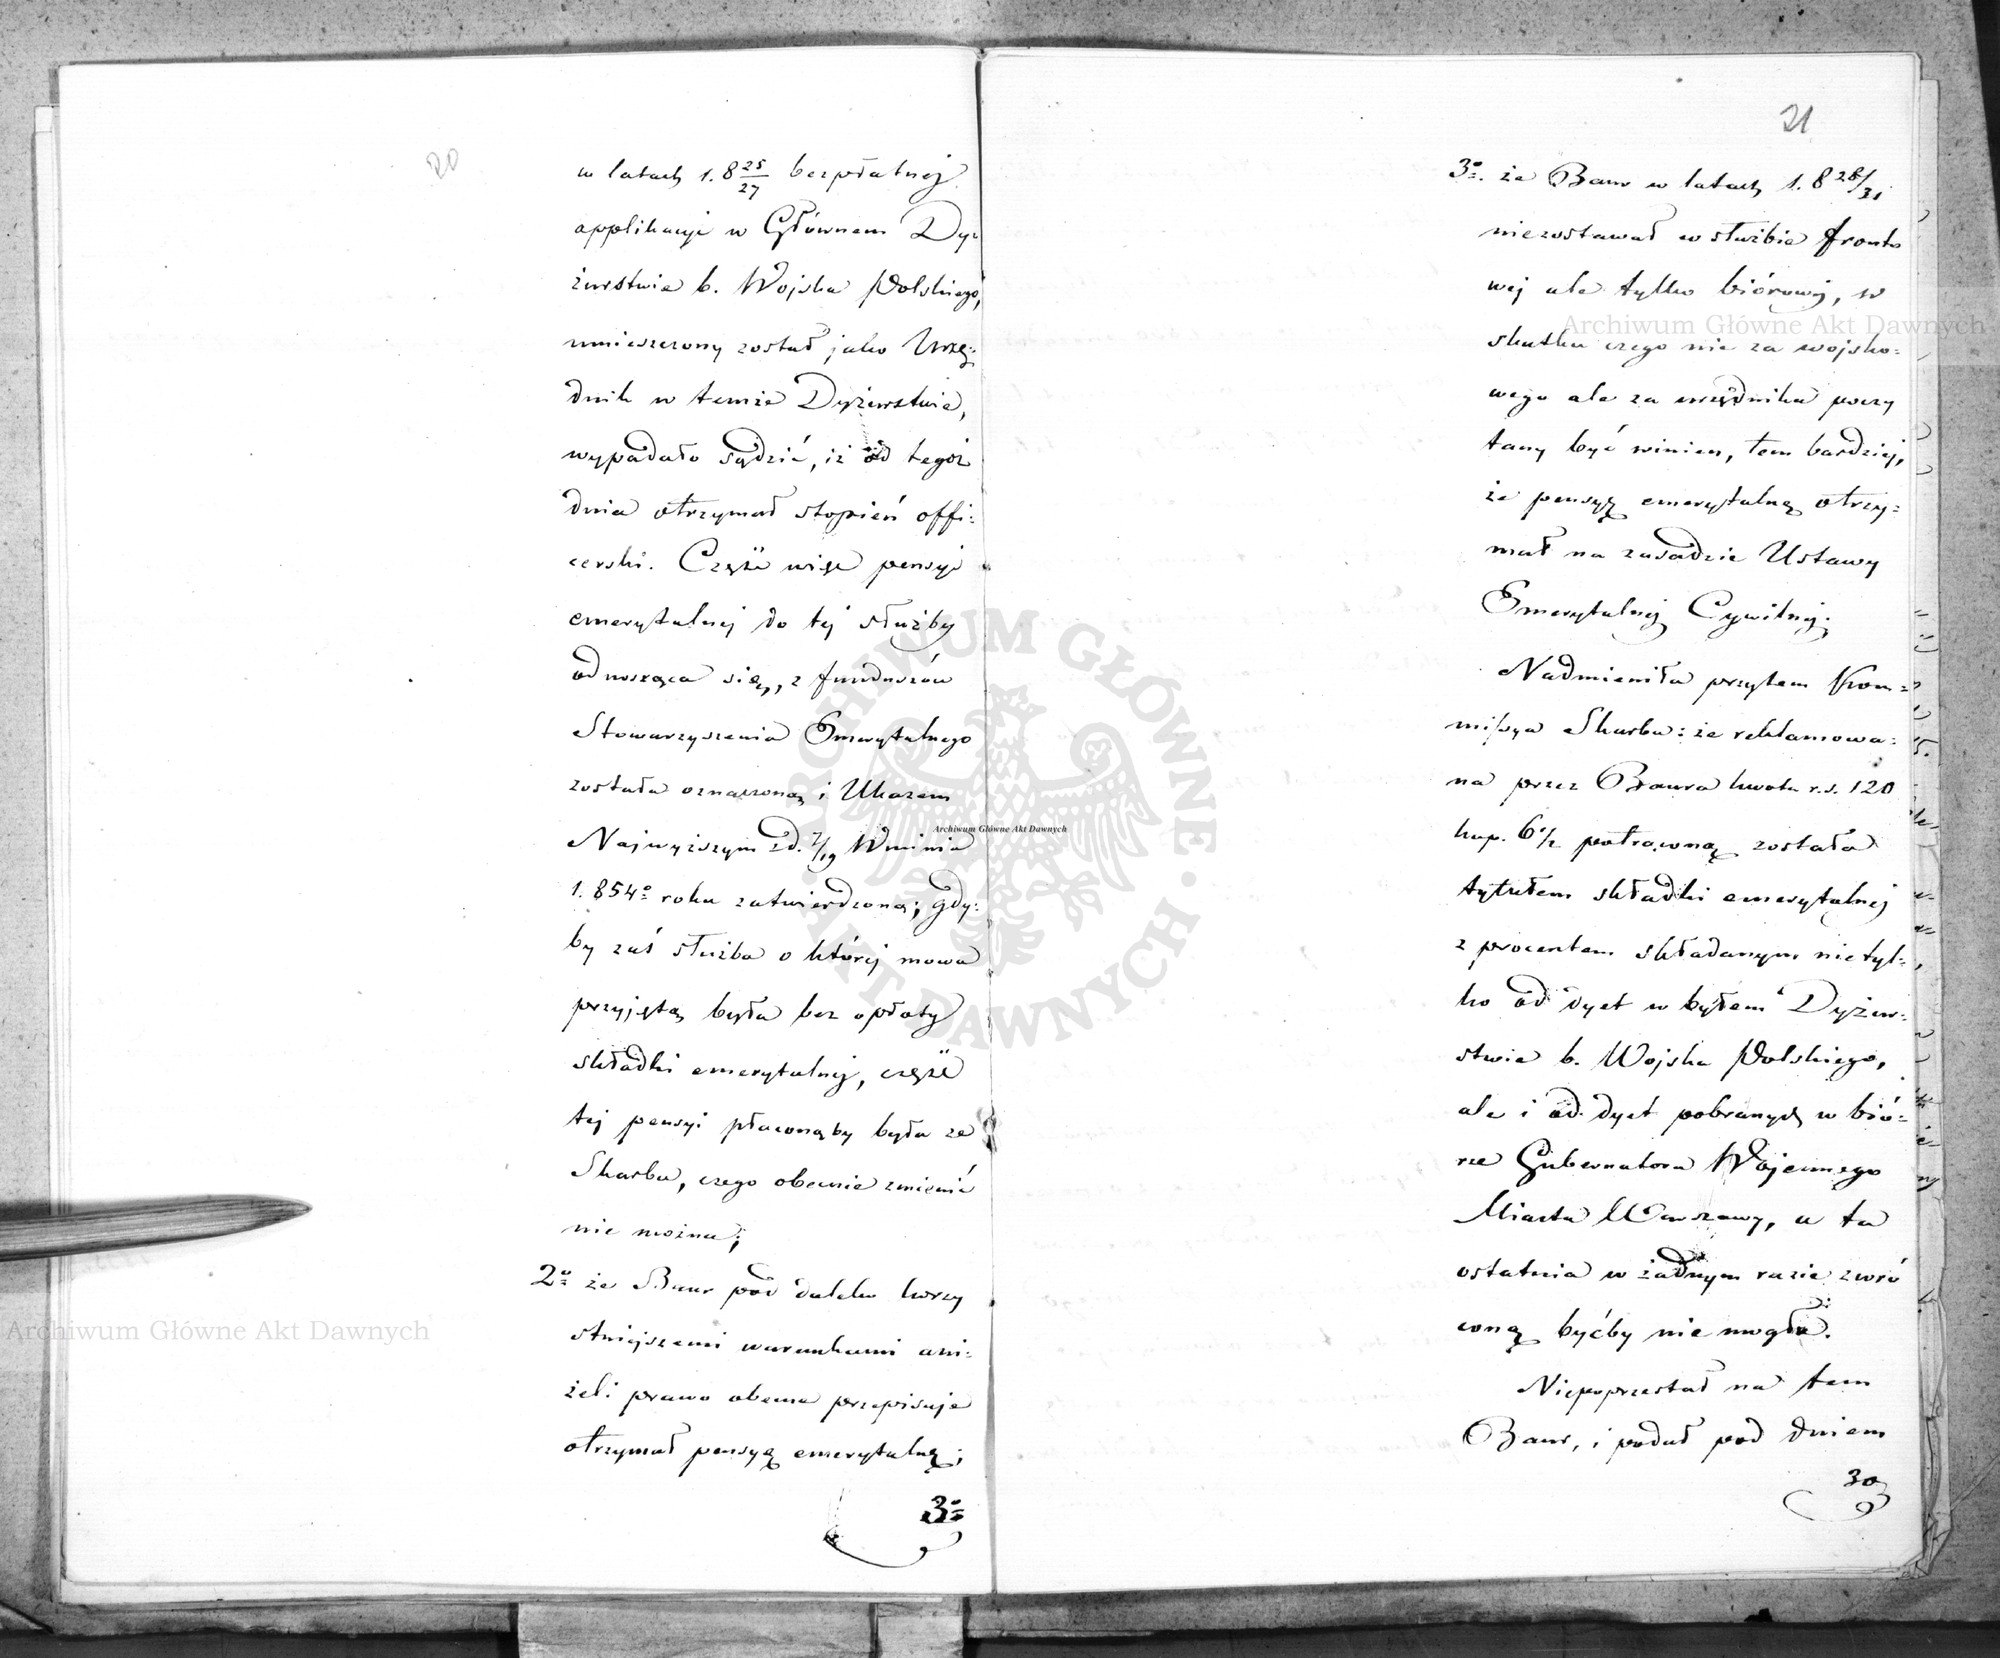 20
w latach 1.8 25/27 bezpłatnej
applikacyi w Głównem Dy-
żurstwie b. Wojska Polskiego,
umieszczony został jako Urzę-
dnik w temże Dyżurstwie,
wypadało sądzić, iż od tegoż
dnia otrzymał stopień offi-
cerski. Część więc pensyi
emerytalnej do tej służby
odnosząca się, z funduszów
Stowarzyszenia Emerytalnego
została oznaczoną i Ukazem
Najwyższym z d. 7/19 Wrześnía
1.854º roku zatwierdzoną; gdy-
by zaś służba o której mowa
przyjętą była bez opłaty
składki emerytalnej, część
tej pensyi płaconąby była ze
Skarbu, czego obecnie zmienić
nie można;
2º że Baur pod daleko korzy
stniejszemi warunkami ani-
żeli prawo obecne przepisuje
otrzymał pensyą emerytalną;
3º
21
3º. że Baur w latach 1.8 28/31
niezostawał w służbie fronto
wej ale tylko biórowej, w
skutku czego nie za wojsko-
wego ale za urzędnika poczy
tany być winien, tem bardziej,
że pensyą emerytalną otrzy-
mał na zasadzie Ustawy
Emerytalnej Cywilnej.
Nadmieniła przytem Kom-
missya Skarbu: że reklamowa-
na przez Baura kwota r.s. 120
kop. 6 1/2 potrąconą została
tytułem składki emerytalnej
z procentem składanym nietyl-
ko od dyet w byłem Dyżur-
stwie b. Wojska Polskiego,
ale i od dyet pobranych w bió-
rze Gubernatora Wojennego
Miasta Warszawy, a ta
ostatnia w żadnym razie zwró
coną byćby nie mogła.
Niepoprzestał na tem
Baur, i podał pod dniem
30
Archiwum Główne Akt Dawnych
Archiwum Główne Akt Dawnych
Archiwum Główne Akt Dawnych
ARCHIWUM GŁÓWNE · AKT DAWNYCH ·